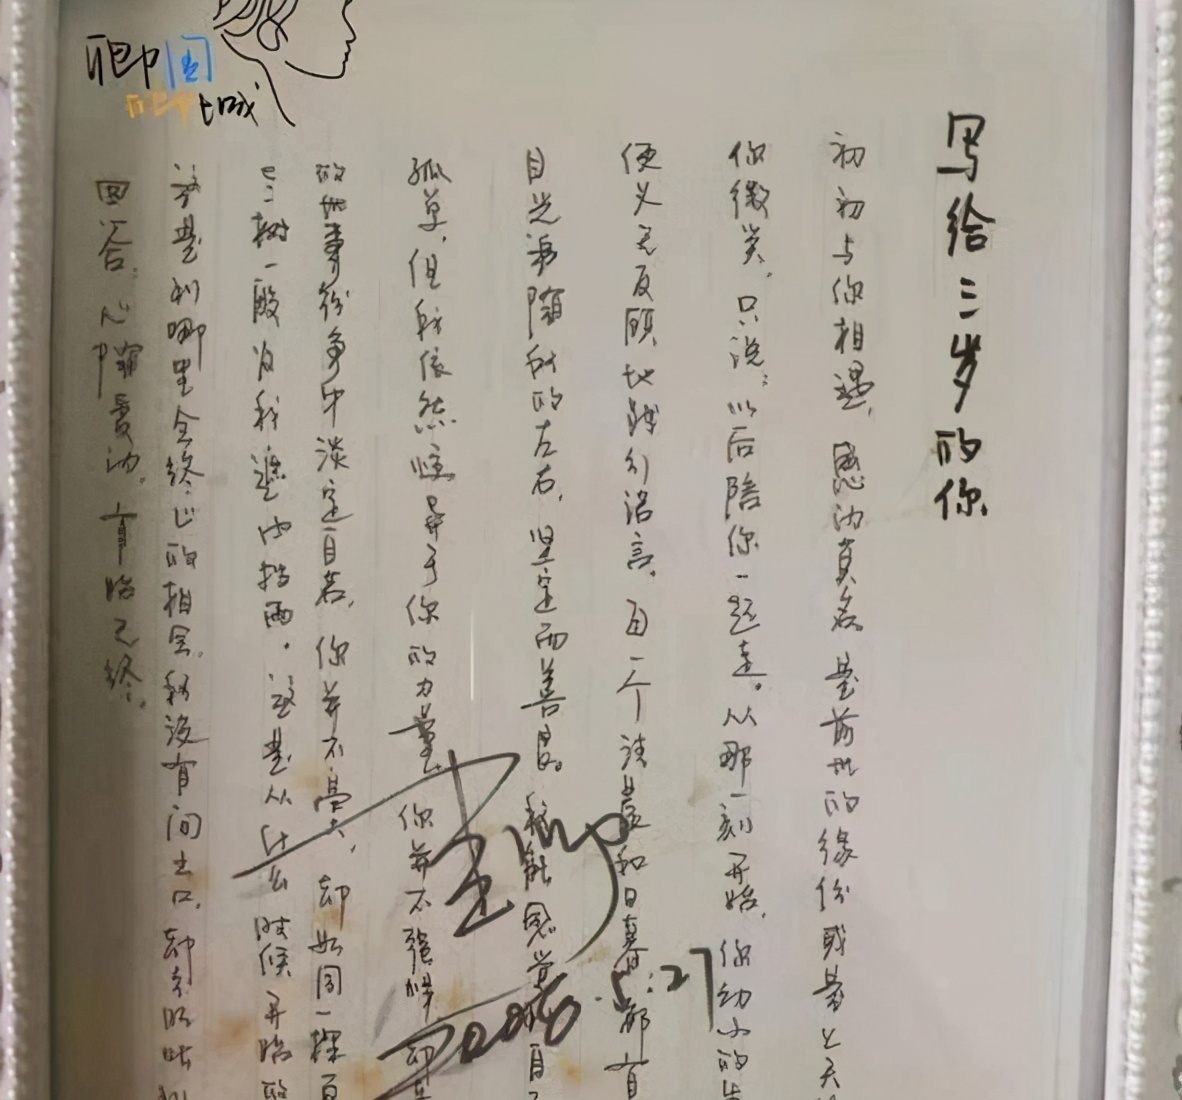 卿国
卿城
写给三岁的你
初初与你相遇，感动莫名。是前世的缘份或是上天
你微笑，只说：以后陪你一起走。从那一刻开始，你幼小的
便义无反顾地践行诺言，每一个清晨和日暮都有
目光追随我的左右，坚定而善良。我能感觉
孤单，但我依然惊异于你的力量。你并不强悍，却
的世事纷争中淡定自若，你并不高大，却如同一棵百
三树一般为我遮风挡雨。这是从什么时候开始的
答是到哪里会终止的相会，我没有问出口，却
回答。心中隔爱动，有始无终。
2008.5.27